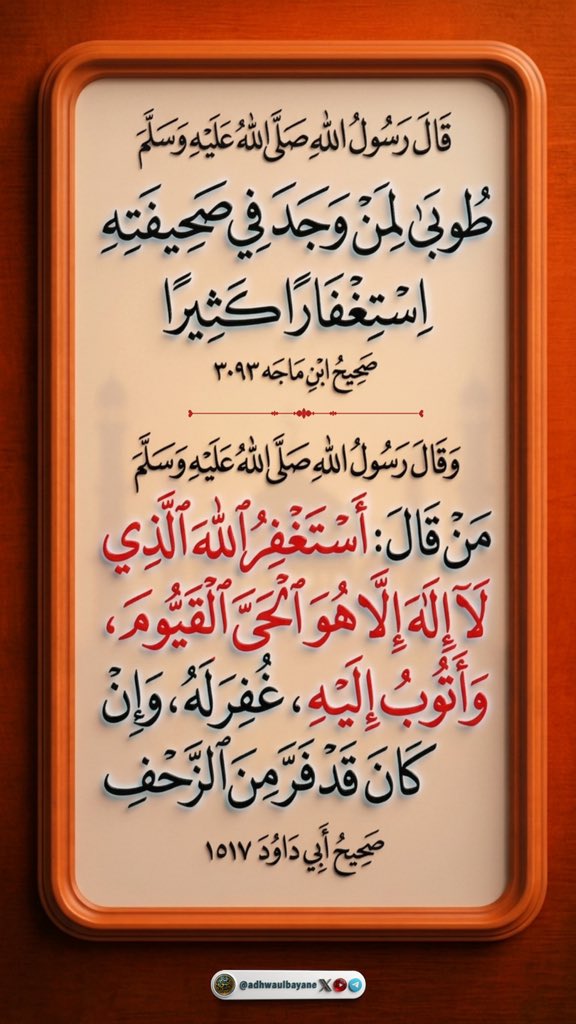 قَالَ رَسُولُ اللهِ صَلَّى اللهُ عَلَيْهِ وَسَلَّمَ
طُوبَىٰ لِمَنْ وَجَدَ فِي صَحِيفَتِهِ
اِسْتِغْفَارًا كَثِيرًا
صَحِيحُ ابْنِ مَاجَه ٣٠٩٣
وَقَالَ رَسُولُ اللهِ صَلَّى اللهُ عَلَيْهِ وَسَلَّمَ
مَنْ قَالَ: أَسْتَغْفِرُ ٱللهَ ٱلَّذِي
لَآ إِلَهَ إِلَّا هُوَ ٱلْحَيَّ ٱلْقَيُّومَ،
وَأَتُوبُ إِلَيْهِ، غُفِرَ لَهُ، وَإِنْ
كَانَ قَدْ فَرَّ مِنَ ٱلزَّحْفِ
صَحِيحُ أَبِي دَاوُدَ ١٥١٧
@adhwaulbayane